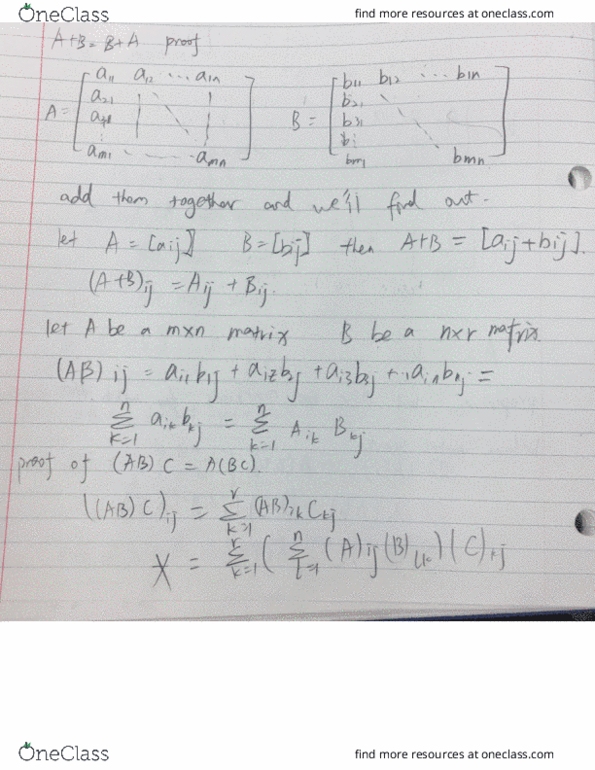 OneClass
find more resources at oneclass.com
A+B = B+A proof
A = [a11 a12 ... a1n
a21
am1 ... amn]
B = [b11 b12 ... b1n
b21
b31
bm1 bmn]
add them together and we'll find out.
let A = [aij] B = [bij] then A+B = [aij + bij].
(A+B)ij = Aij + Bij.
let A be a mxn matrix B be a nxr matrix.
(AB)ij = ai1b1j + ai2b2j + ai3b3j + ... ainbnj =
n∑k=1 aik bkj = n∑k=1 Aik Bkj
proof of (AB)C = A(BC).
((AB)C)ij = r∑k=1 (AB)ik Ckj
X = r∑k=1 ( n∑l=1 (A)ij (B)lk ) (C)kj
OneClass
find more resources at oneclass.com